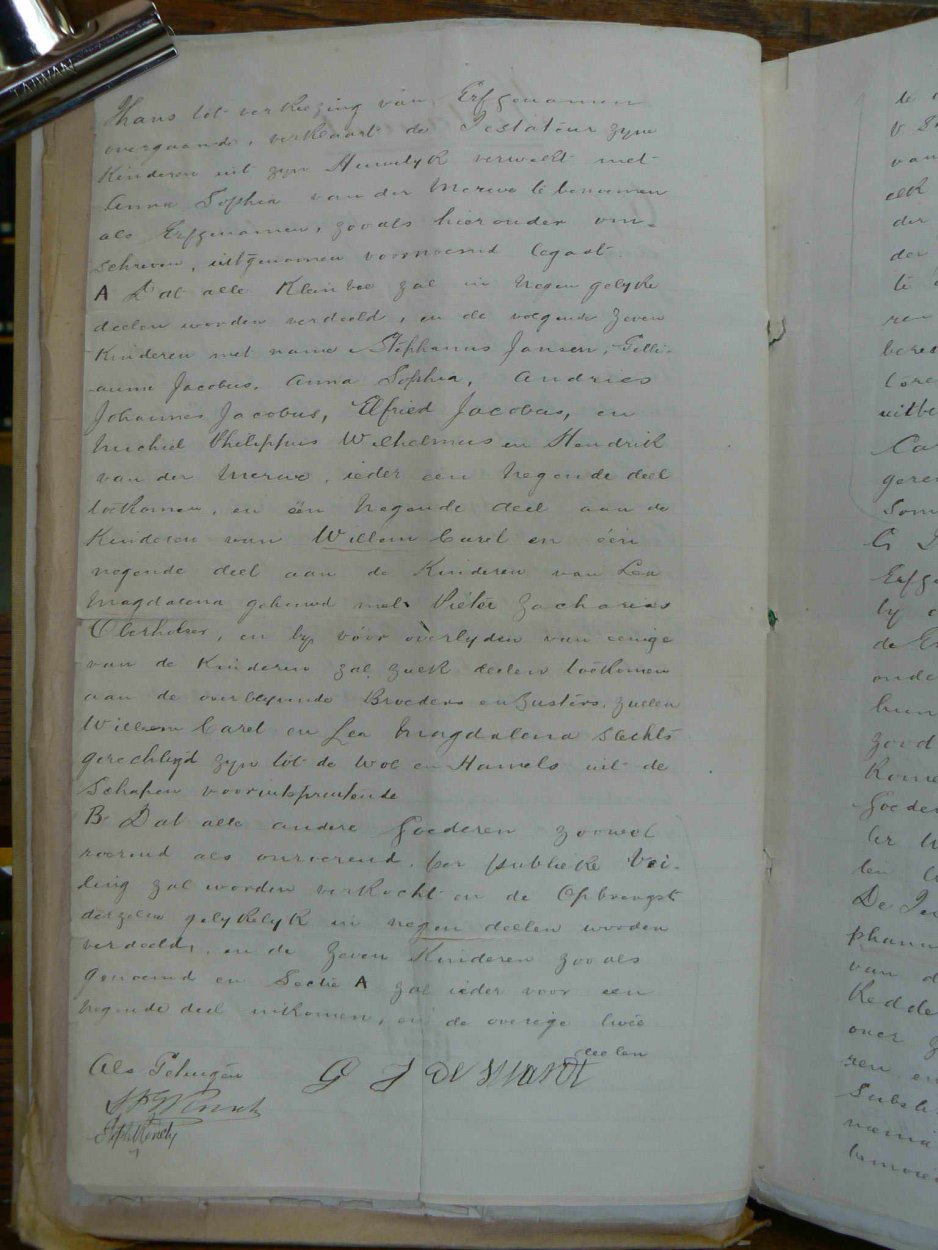 TAIWAN
Thans tot verkiezing van Erfgenamen
overgaande, verklaart de Testateur zyne
Kinderen uit zyn Huwelyk verwekt met
Anna Sophia van der Merwe te benoemen
als Erfgenamen, zooals hieronder om-
schreven, uitgenomen voornoemd legaat
A Dat alle Klein vee zal in negen gelyke
deelen worden verdeeld, en de volgende zeven
Kinderen met name Stephanus Jansen, Gilli-
aume Jacobus, Anna Sophia, Andries
Johannes Jacobus, Elfried Jacobus, en
Michiel Philippus Wilhelmus en Hendrik
van der Merwe, ieder een negende deel
toekomen, en één negende deel aan de
Kinderen van Willem Carel en één
negende deel aan de Kinderen van Lea
Magdalena gehuwd met Pieter Zacharias
Oberholzer, en by vóór overlyden van eenige
van de Kinderen zal zulk deelen toekomen
aan de overblyvende Broeders en Zusters, zullen
Willem Carel en Lea Magdalena slechts
gerechtigd zyn tot de Wol en Hamels uit de
Schapen vooruitspruitende
B Dat alle andere Goederen zoowel
roerend als onroerend, per publieke Vei-
ling zal worden verkocht en de Opbrengst
derzelve gelykelyk in negen deelen worden
verdeeld, en de zeven Kinderen zooals
genoemd en Sectie A zal ieder voor een
negende deel inkomen, en de overige twee
deelen
Als Getuigen
G J De Wardt
te
van
elk
der
der
te
uitbe
Som
Erfg
by
de
onde
hun
zood
Kome
Goeder
De Te
phanu
van d
Redde
over
ren en
Substi